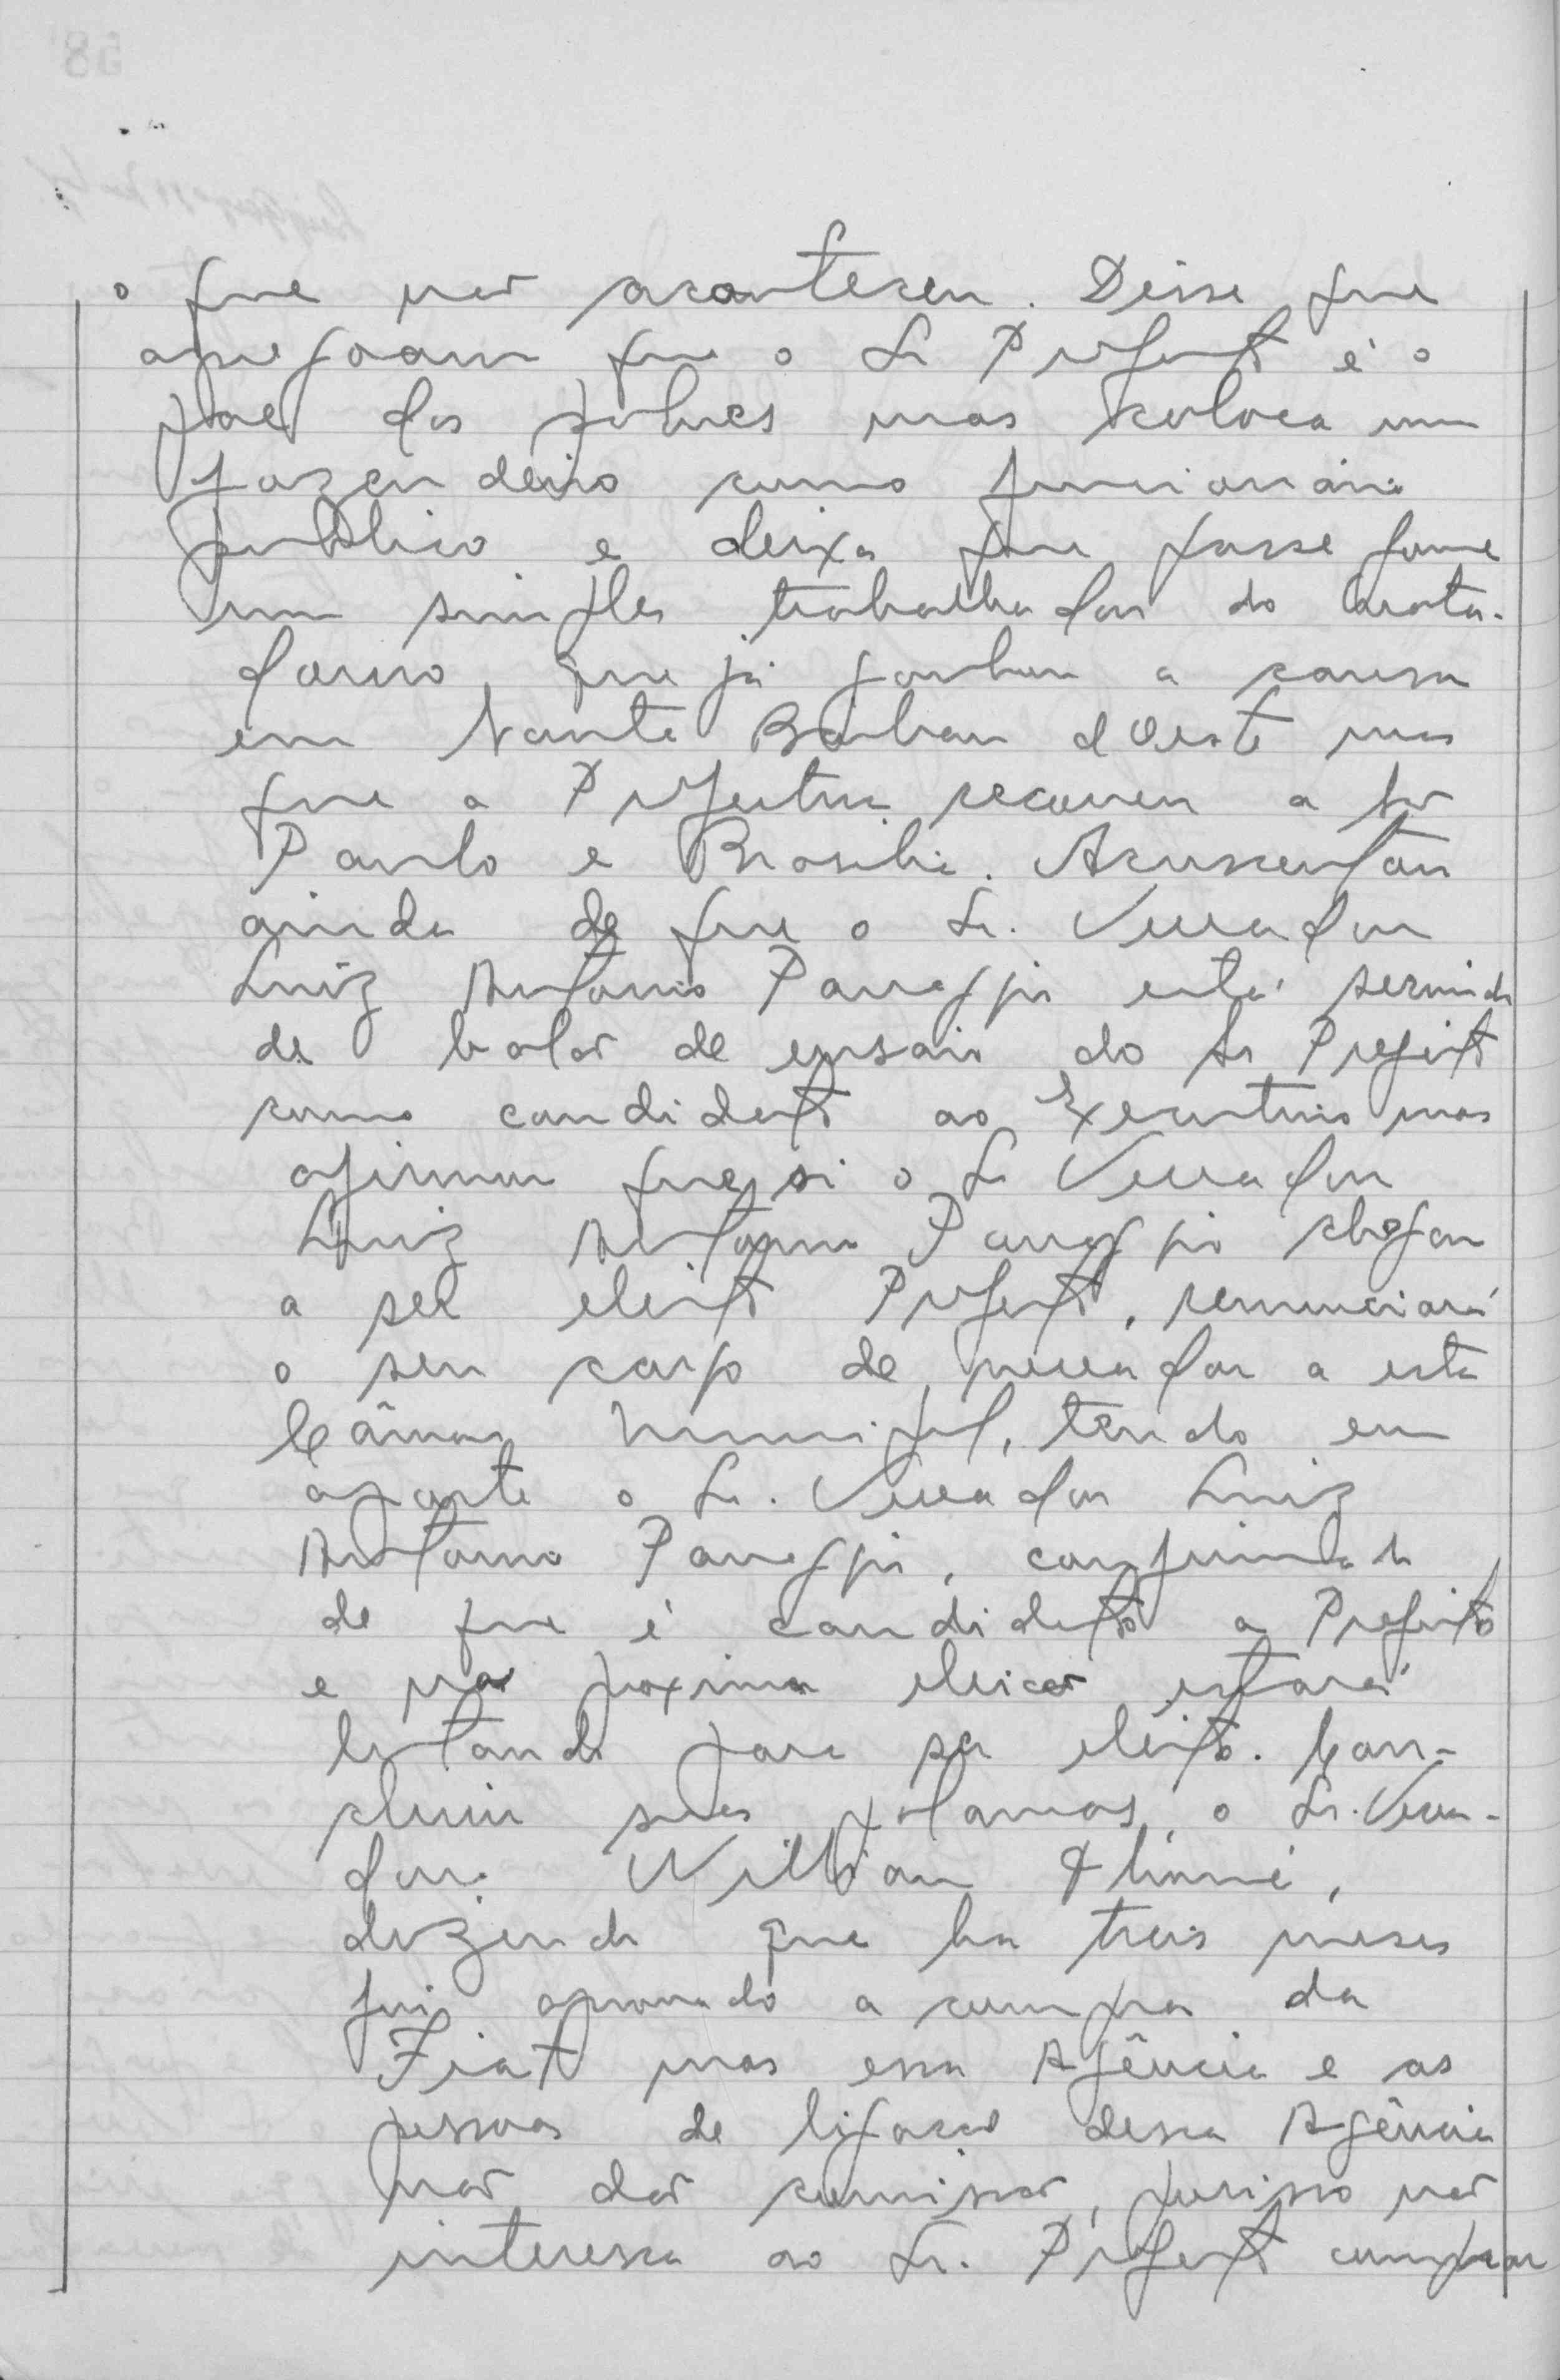 o que não aconteceu. Disse que
apregoam que o Sr Prefeito é o
pae dos pobres mas coloca um
fazendeiro como funcionário
publico e deixa que passe fome
um simples trabalhador do mata-
douro, que já ganhou a causa
em Santa Barbara d'Oeste mas
que a Prefeitura recorreu a São
Paulo e Brasilia. Acrescentou
ainda de que o Sr. Vereador
Luiz Antonio Panaggio está servindo
de balão de ensaio do Sr Prefeito
como candidato ao Executivo mas
afirmou que si o Sr Vereador
Luiz Antonio Panaggio chegar
a ser eleito Prefeito, renunciará
o seu cargo de vereador a esta
Câmara Municipal, tendo em
aparte o Sr. Vereador Luiz
Antonio Panaggio, confirmado
de que é candidato a Prefeito
e na proxima eleição estará
lutando para ser eleito. Con-
cluiu suas palavras, o Sr. Verea-
dor William
dizendo que ha treis meses
foi aprovado a compra da
Fiat mas essa Agência e as
pessoas de ligação dessa Agência
não dão comissão, porisso não
interessa ao Sr. Prefeito comprar